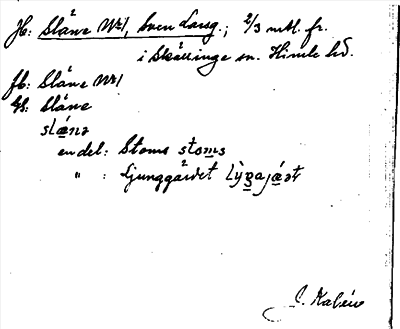 Jb: Slåne Nr1, Sven Larsg.; 2/3 mtl. fr.
i Skällinge sn. Himle hd.
fb: Slåne Nr1
Us: Slåne
slǽnə
en del: Stoms stoms
" : Ljunggärdet
C. Kalén